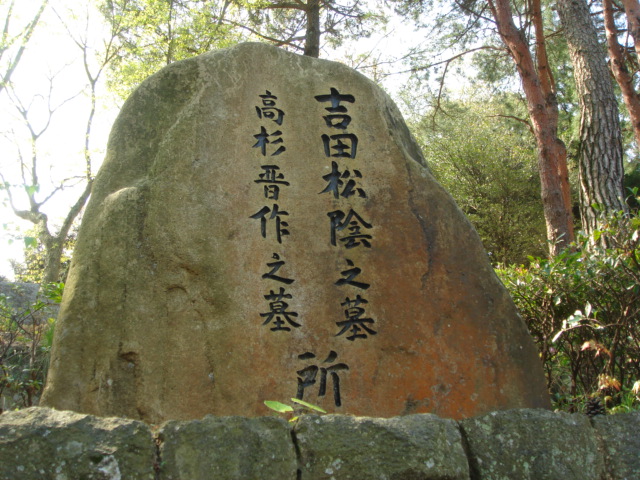 吉田松陰之墓
高杉晋作之墓
所